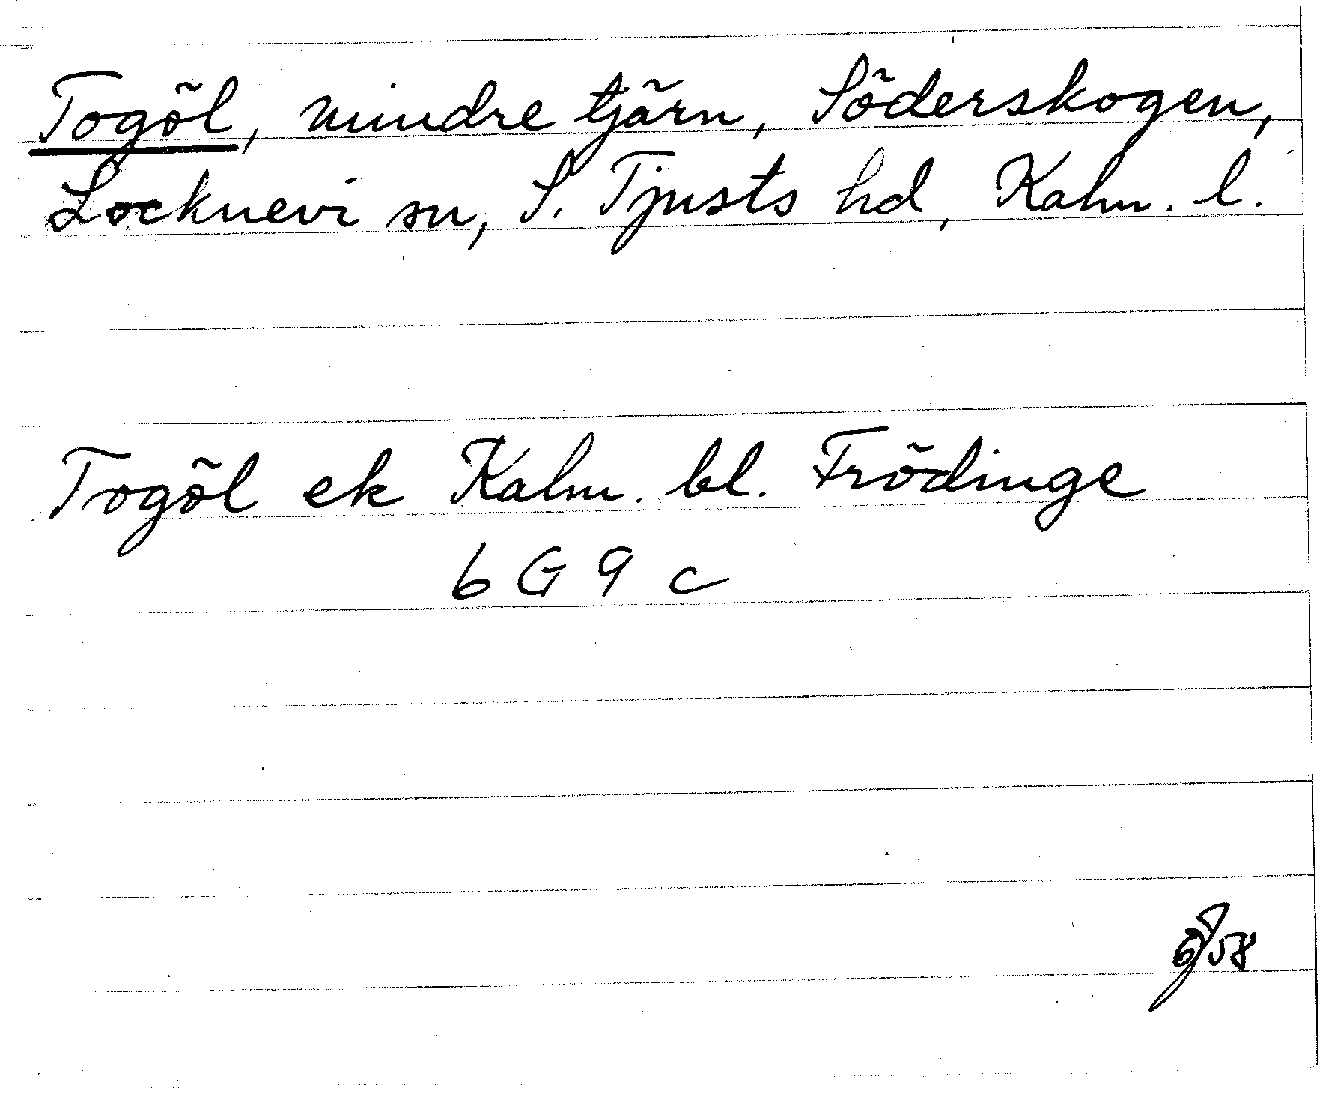 Togöl, mindre tjärn, Söderskogen,
Locknevi sn, S. Tjusts hd, Kalm. l.
Togöl ek Kalm. bl. Frödinge
6 G 9 c
58